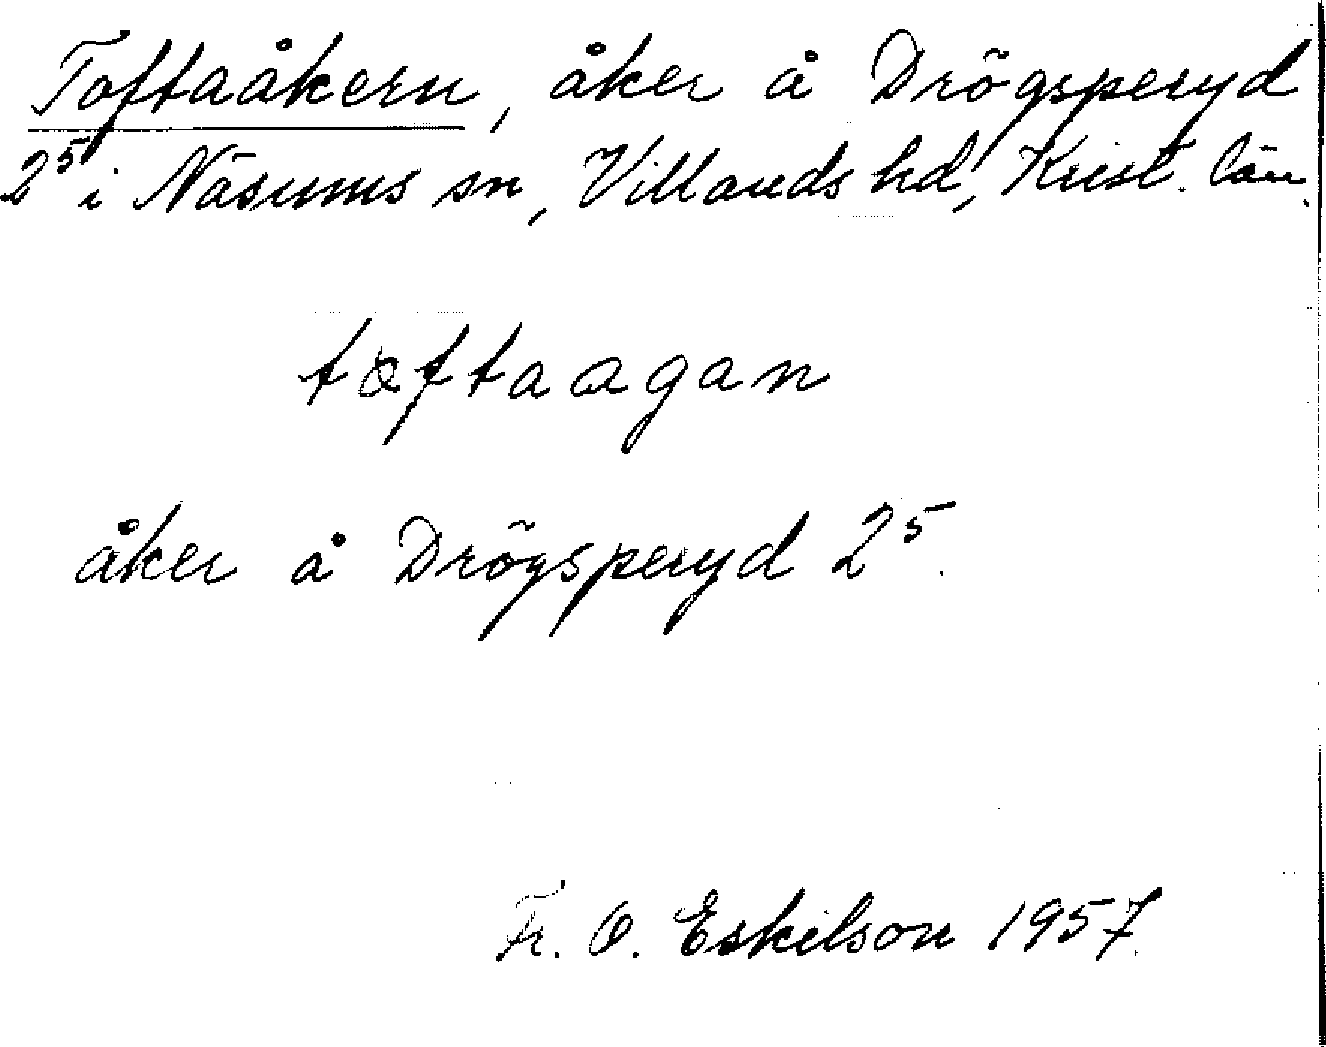 Toftaåkern, åker å Drögsperyd
2⁵ i Näsums sn, Villands hd, Krist. län.
tæftaagan
åker å Drögsperyd 2⁵.
Fr. O. Eskilson 1957.